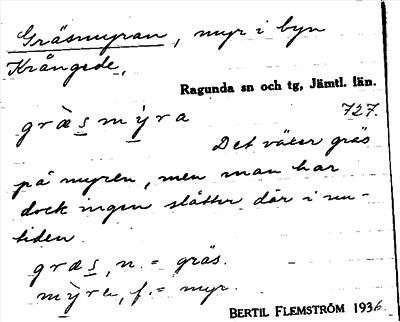 Gräsmyran, myr i byn
Krångede,
Ragunda sn och tg, Jämtl. län.
græ̀s mỳra
727.
Det växer gräs
på myren, men man har
dock ingen slåtter där i nu-
tiden.
græs, n. = gräs.
mỳra, f. = myr.
BERTIL FLEMSTRÖM 1936.